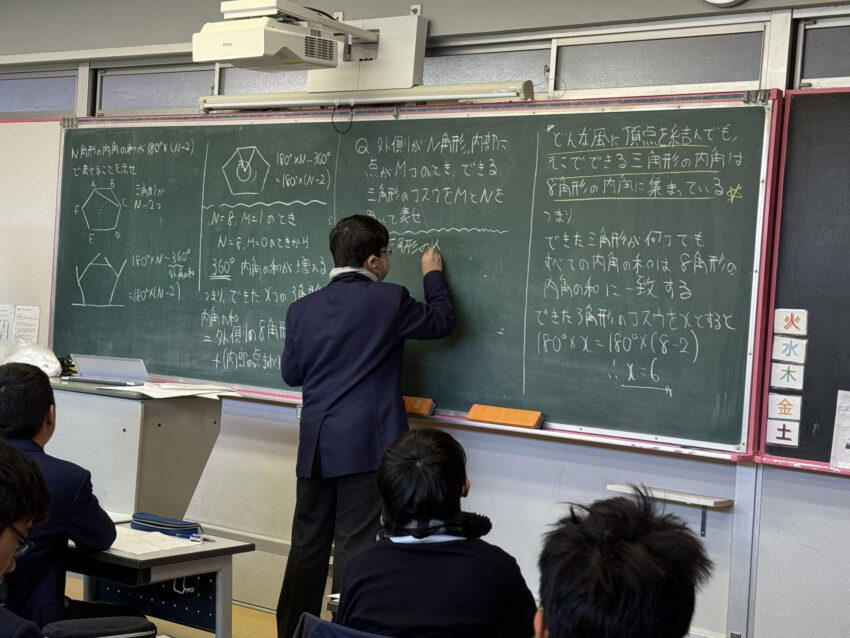 N角形の内角の和が180°×(N-2)
で表せることを示せ
A B
C
F
E D
三角形が
N-2つ
180°×N-360°
外角の和
=180°×(N-2)
180°×N-360°
=180°×(N-2)
N=8, M=1のとき
N=8, M=0のときから
360° 内角の和が増える
つまり、できたxつの3角形
内角の和
=外側の8角形
+(内部の点まわり
Q 外側がN角形、内部に
点がMつのとき、できる
三角形のコスウをMとNを
いて表せ
三角形の
どんな風に頂点を結んでも、
そこでできる三角形の内角は
8角形の内角に集まっている
つまり
できた三角形が何コでも
すべての内角の和は8角形の
内角の和に一致する
できた3角形のコスウをxとすると
180°×x=180°×(8-2)
∴x=6
EPSON
火
水
木
金
土